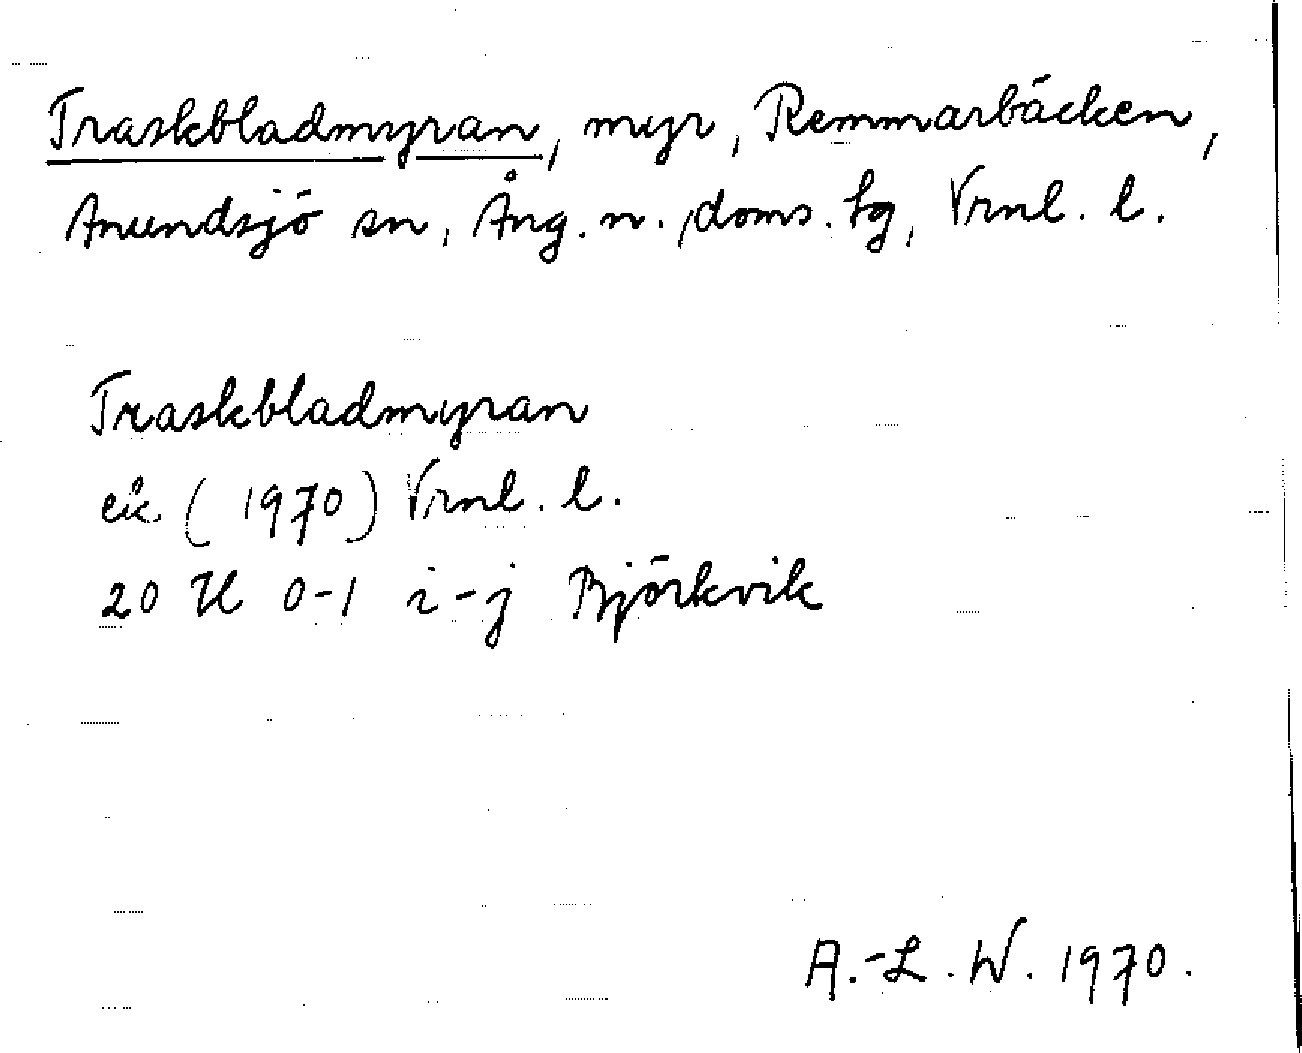 Traskbladmyran, myr, Remmarbäcken,
Anundsjö sn, Ång. n. doms. tg, Vrnl. l.
Traskbladmyran
ek (1970) Vrnl. l.
20 H 0-1 i-j Björkvik
A.-L. W. 1970.